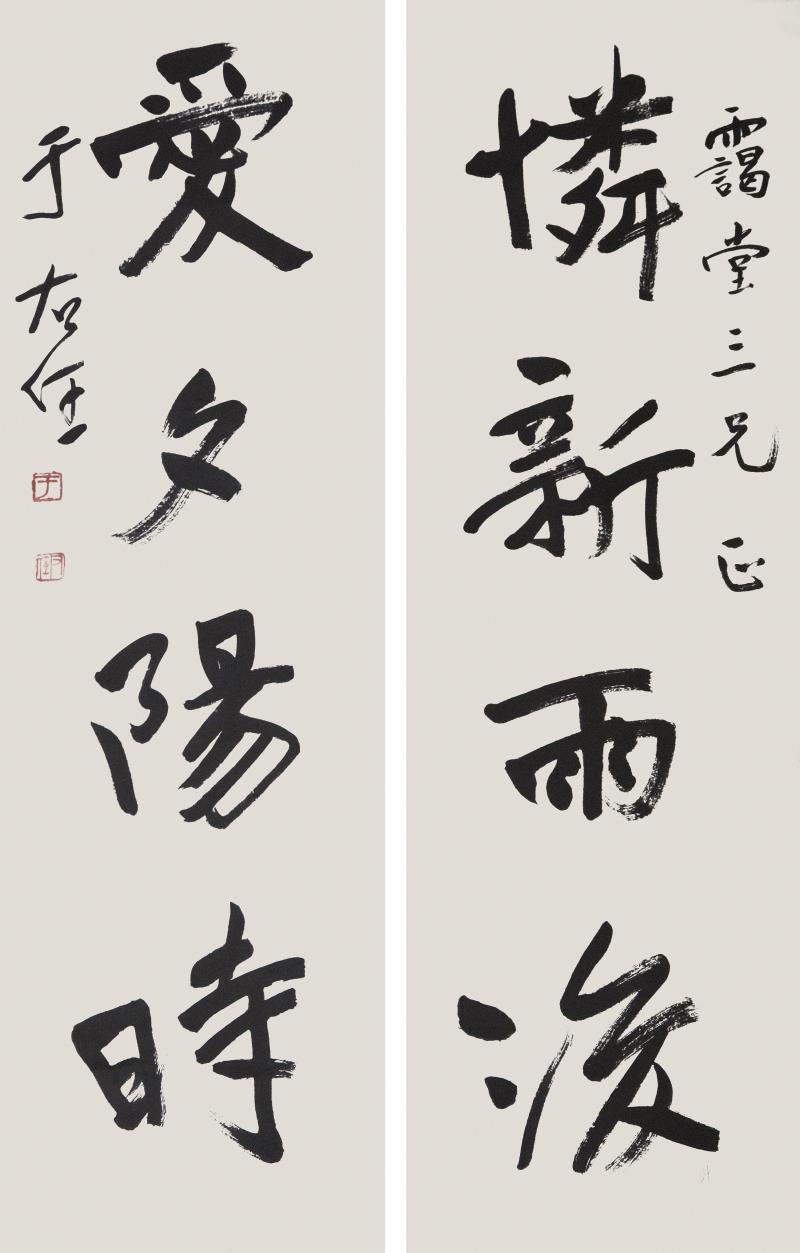 靄堂三兄 正
憐新雨後
愛夕陽時
于右任